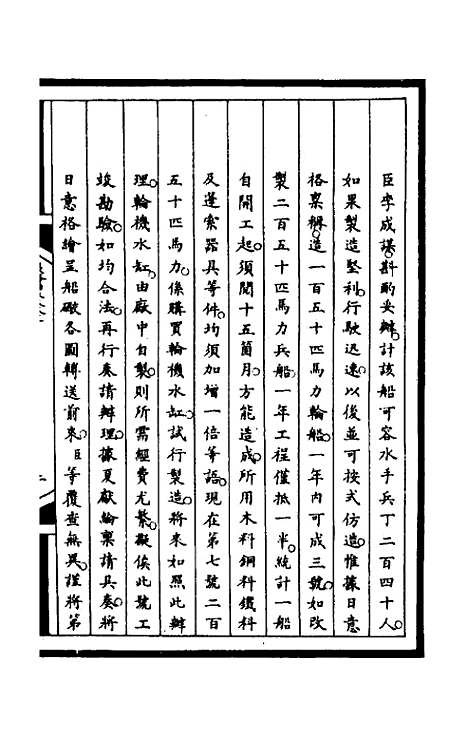 臣李成謀斟酌妥辦計該船可容水手兵丁二百四十人
如果製造堅利行駛迅速以後並可按式仿造惟據日意
格稟稱造一百五十匹馬力輪船一年内可成三號如改
製二百五十匹馬力兵船一年工程僅抵一半統計一船
自開工起須閱十五箇月方能造成所用木料銅料鐵料
及蓬索器具等件均須加增一倍等語現在第七號二百
五十匹馬力係購買輪機水缸試行製造將來如照此辦
理輪機水缸由廠中自製則所需經費尤繁擬俟此號工
竣勘驗如均合法再行奏請辦理據夏獻綸稟請具奏將
日意格繪呈船礮各圖轉送前來臣等覆查無異謹將第